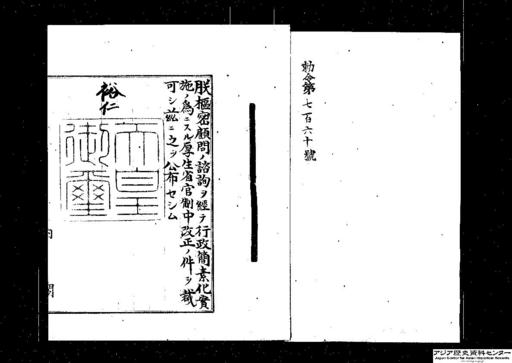 勅令第七百六十號
朕樞密顧問ノ諮詢ヲ經テ行政簡素化實
施ノ爲ニスル厚生省官制中改正ノ件ヲ裁
可シ茲ニ之ヲ公布セシム
裕仁
天皇
御璽
内閣
アジア歴史資料センター
Japan Center for Asian Historical Records